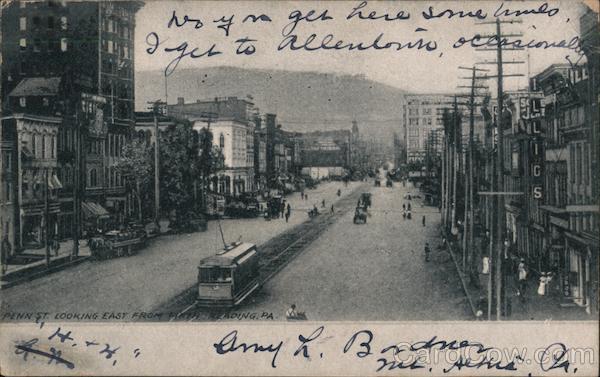 Do you get here some times,
I get to Allentown, occasionally
DRUGS
PENN ST. LOOKING EAST FROM FIFTH, READING, PA.
"H. + H,"
Amy L. Bordner
Mt. Aetna, Pa.
CardCow.com